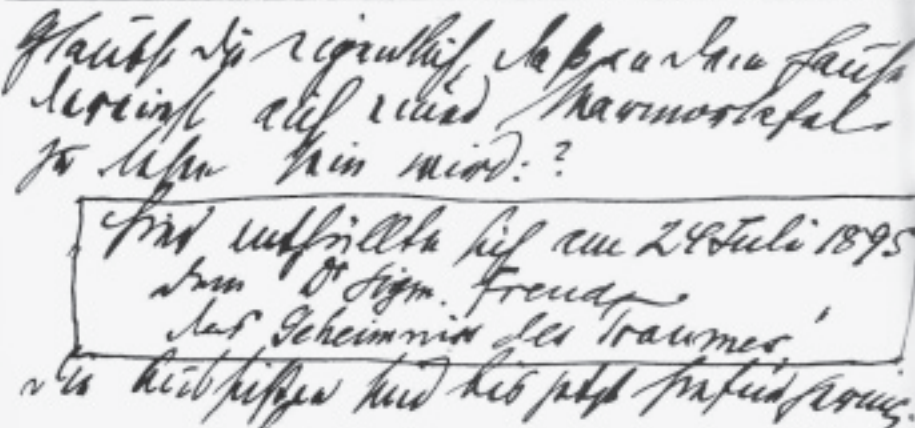 Glaubst Du eigentlich, daß an dem Hause
dereinst auf einer Marmortafel
zu lesen sein wird: ?
Hier enthüllte sich am 24 Juli 1895
dem Dr Sigm. Freud
das Geheimnis des Traumes
Die Aussichten sind bis jetzt hiefür gering.